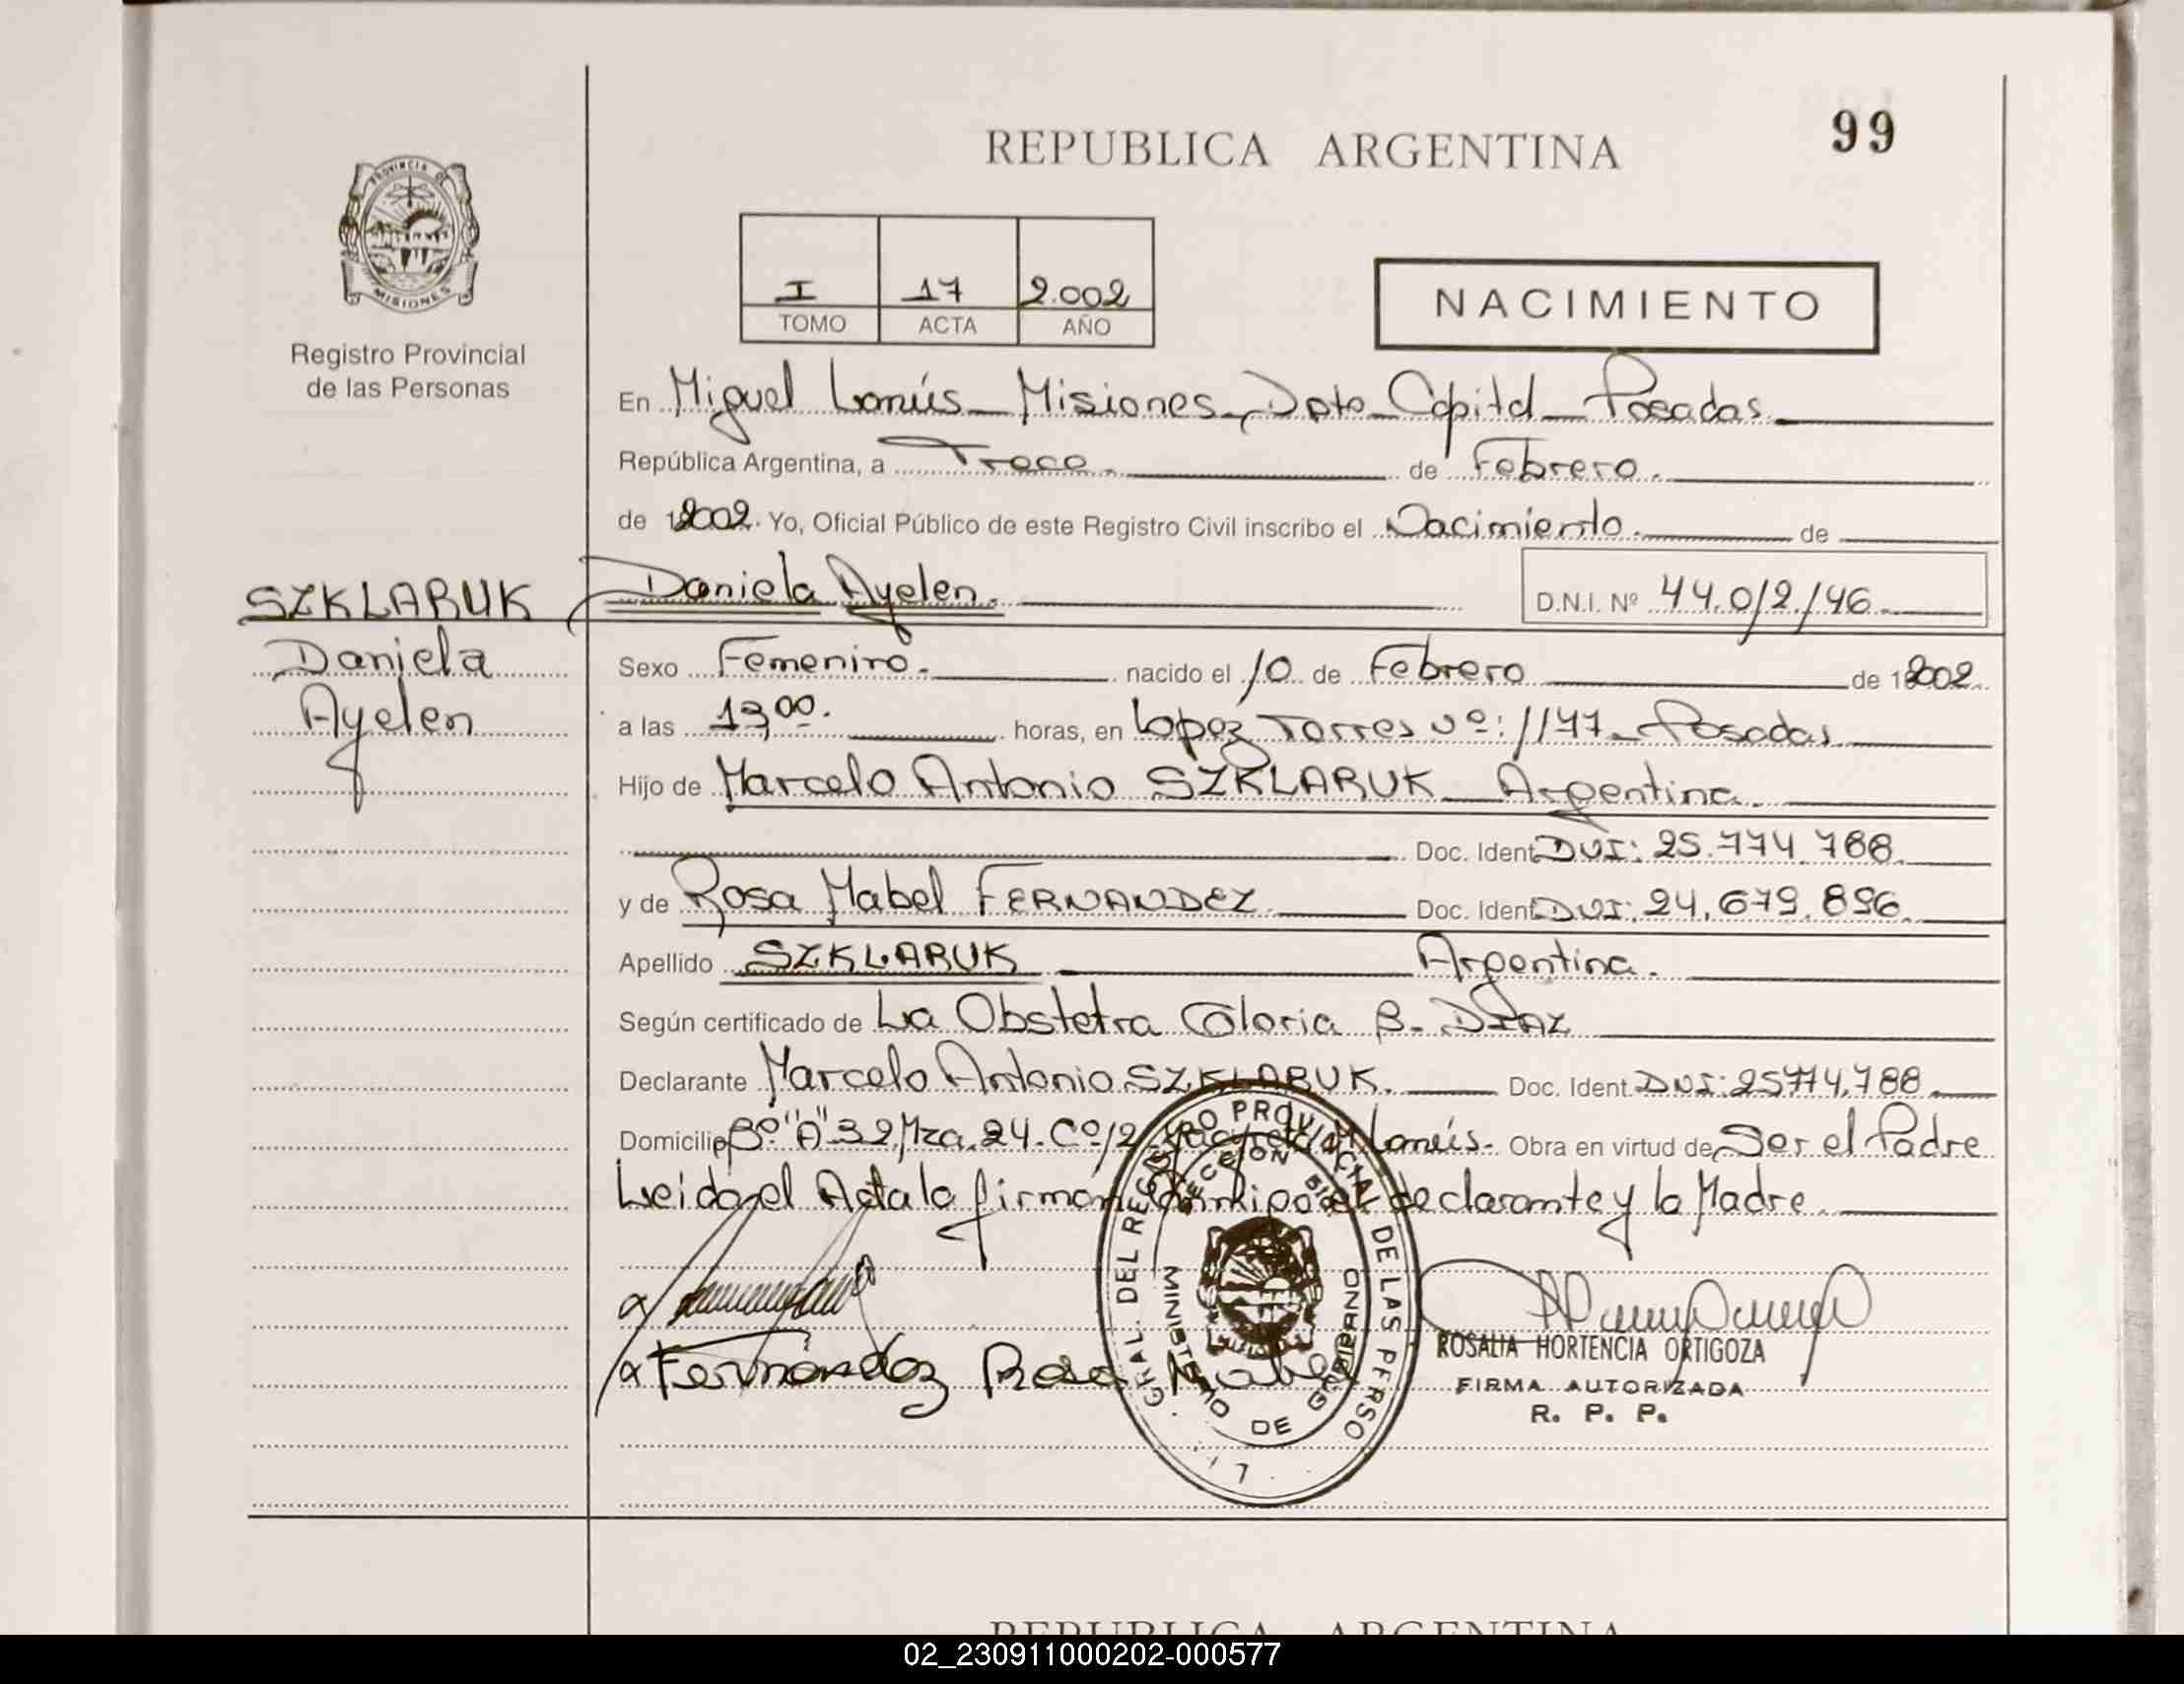 99
REPUBLICA ARGENTINA
PROVINCIA DE
MISIONES
Registro Provincial
de las Personas
I 17 2.002
TOMO ACTA AÑO
NACIMIENTO
En Miguel Lanús_ Misiones_, Dpto_ Capital_ Posadas
República Argentina, a Trece. de Febrero.
de 2002. Yo, Oficial Público de este Registro Civil inscribo el Nacimiento. de
SZKLARUK Daniela Ayelen. D.N.I. Nº 44.012.146
Daniela
Ayelen
Sexo Femenino. nacido el 10 de Febrero de 2002.
a las 13,00. horas, en Lopez Torres Nº: 1147_ Posadas
Hijo de Marcelo Antonio SZKLARUK_ Argentina.
Doc. Ident. DNI: 25.774.788.
y de Rosa Mabel FERNANDEZ Doc. Ident. DNI: 24.679.896.
Apellido SZKLARUK Argentina.
Según certificado de La Obstetra Gloria B. DIAZ
Declarante Marcelo Antonio SZKLARUK. Doc. Ident. DNI: 25774.788
Domicilio Bº "A" 32, Mza. 24. Cº12 M. Lanús. Obra en virtud de Ser el Padre
Leida el Acta la firman Conmigo el declarante y la Madre.
Fernández Rosa Mabel
GRAL. DEL REGISTRO PROVINCIAL DE LAS PERSO
MINISTERIO DE GOBIERNO
ROSALIA HORTENCIA ORTIGOZA
FIRMA AUTORIZADA
R. P. P.
REPUBLICA ARGENTINA
02_230911000202-000577